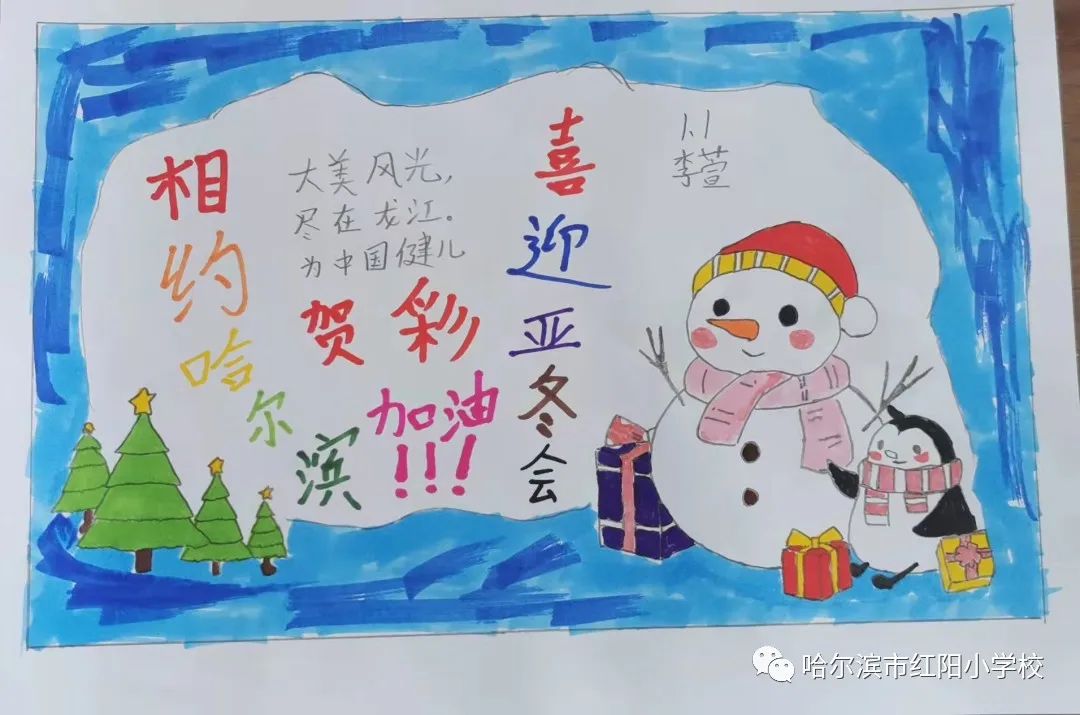 相约哈尔滨
大美风光,
尽在龙江。
为中国健儿
贺彩
加油
!!!
喜迎亚冬会
1.1
李萱
哈尔滨市红阳小学校